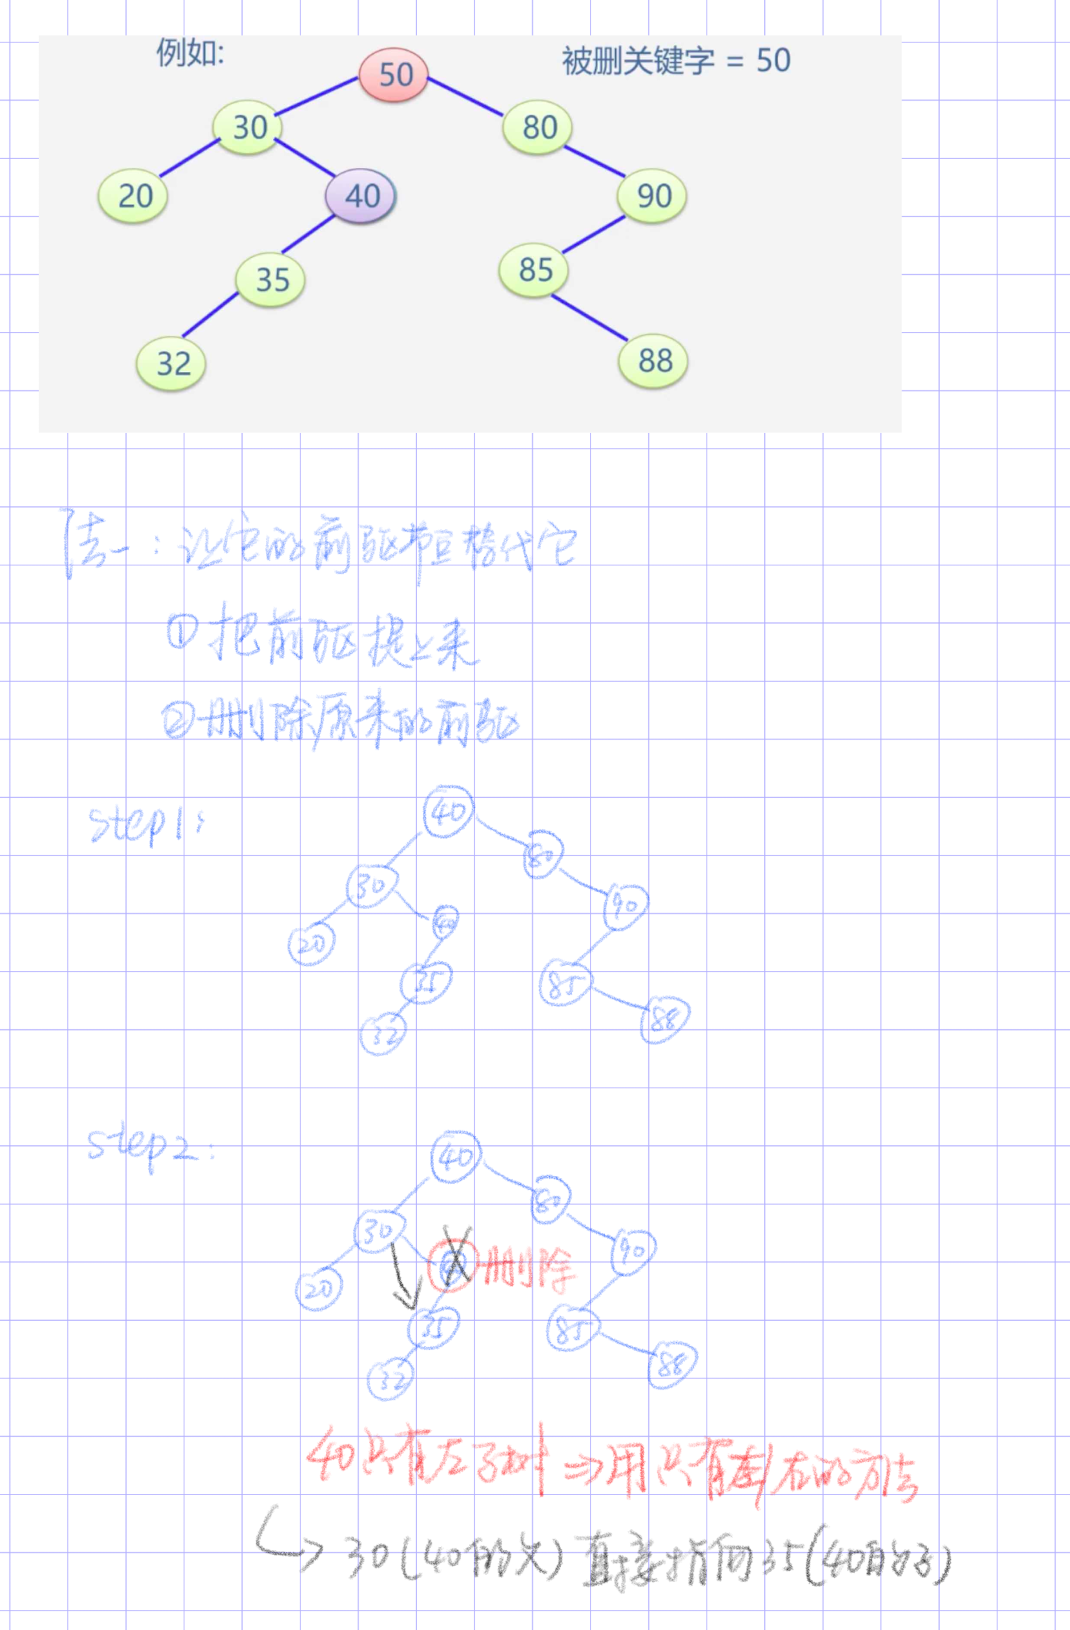 例如:
被删关键字 = 50
50
30 80
20 40 90
35 85
32 88
法一：让它的前驱节点替代它
①把前驱提上来
②删除原来的前驱
step1:
40
30 80
20 40 90
35 85
32 88
step2:
40
30 80
20 40 删除 90
35 85
32 88
40只有左子树⇒用只有左/右的方法
↳ 30(40的父)直接指向35(40的子)